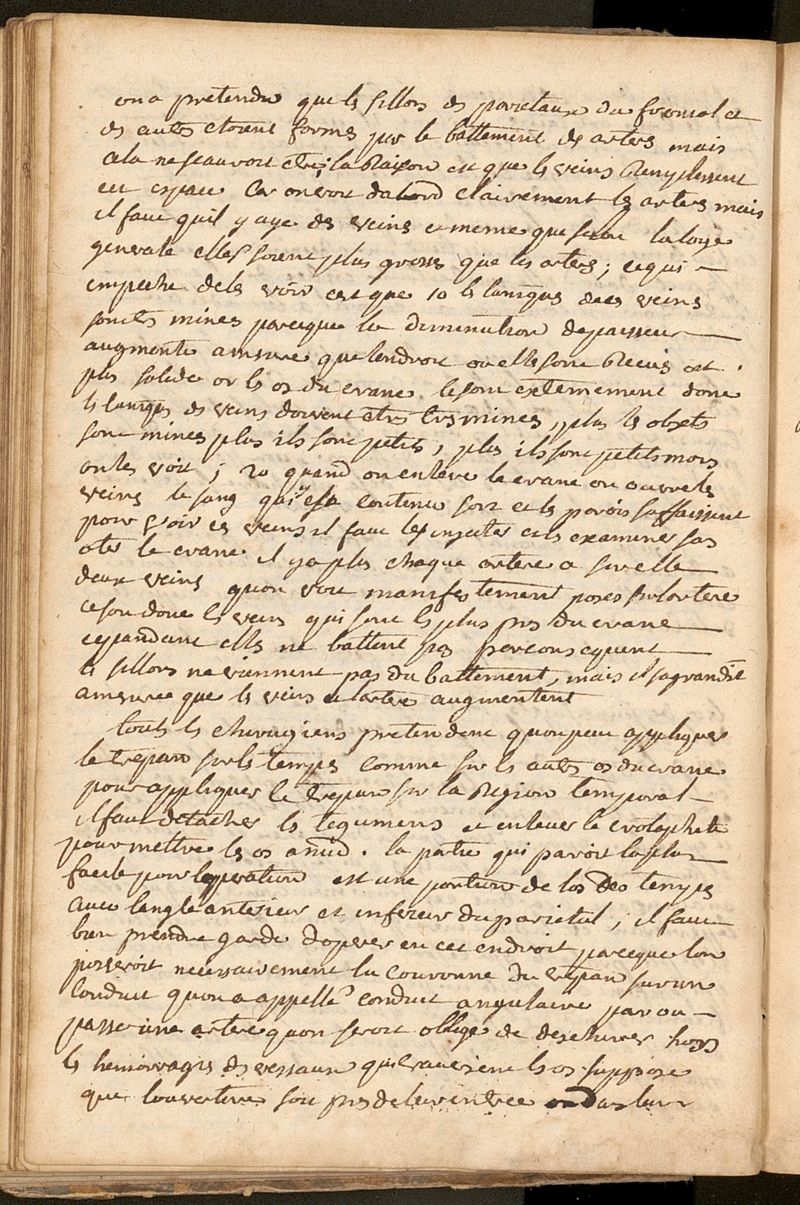 on a pretendu que les sillons des parietaux du frontal et
des autres etoient formés par le battement des arteres mais
cela ne scauroit etre; la Raison est que les veines Remplissent
cet espace Car on voit dabord clairement les arteres mais
il faut quil y aye des veines et meme que la loye
generale elles soient plus grosses que les arteres; ce qui
empeche de les voir cest que 1o les tuniques des veines
sont mines parceque la diminution depaisseur
augmente a mesure que lendroit ou elles sont Recues est
plus solide or les os du crane le sont extremement donc
les tuniques des veines doivent etre tres mines, plus les objets
sont mines plus ils sont petits, plus ils sont petits moins
on les voit; 2o quand on enleve le crane on ouvre les
veines le sang qui y est contenu sort et les parois saffaissent
pour voir ces veines il faut les injecter et les examiner sans
oter le crane. il y a plus chaque artere a sur elle
deux veines quon voit manifestement posées sur lartere
ce sont donc les veines qui sont les plus pres du crane
cependant elles ne battent pas par consequent
les sillons ne viennent pas du battement, mais il sagrandit
a mesure que les veines et arteres augmentent
touts les chirurgiens pretendent quon peut appliquer
le trepan sur les temples comme sur les autres os du crane
pour appliquer le trepan sur la Region temporal
il faut detacher les tegumens et enlever le crotaphite
pour mettre les os a nud. la partie qui paroit la plus
facile pour loperation est une portion de los des temples
avec langle anterieur et inferieur du parietal; il faut
bien prendre garde doperer en cet endroit parceque lon
poseroit necessairement la couronne du trepan sur un
conduit quon a appellé conduit angulaire par ou
passe une artere quon seroit obligé de dechirer hors
les hemorragies des vessaux qui traversent les os suppose
que louverture soit pres de lentrée ou dans leur